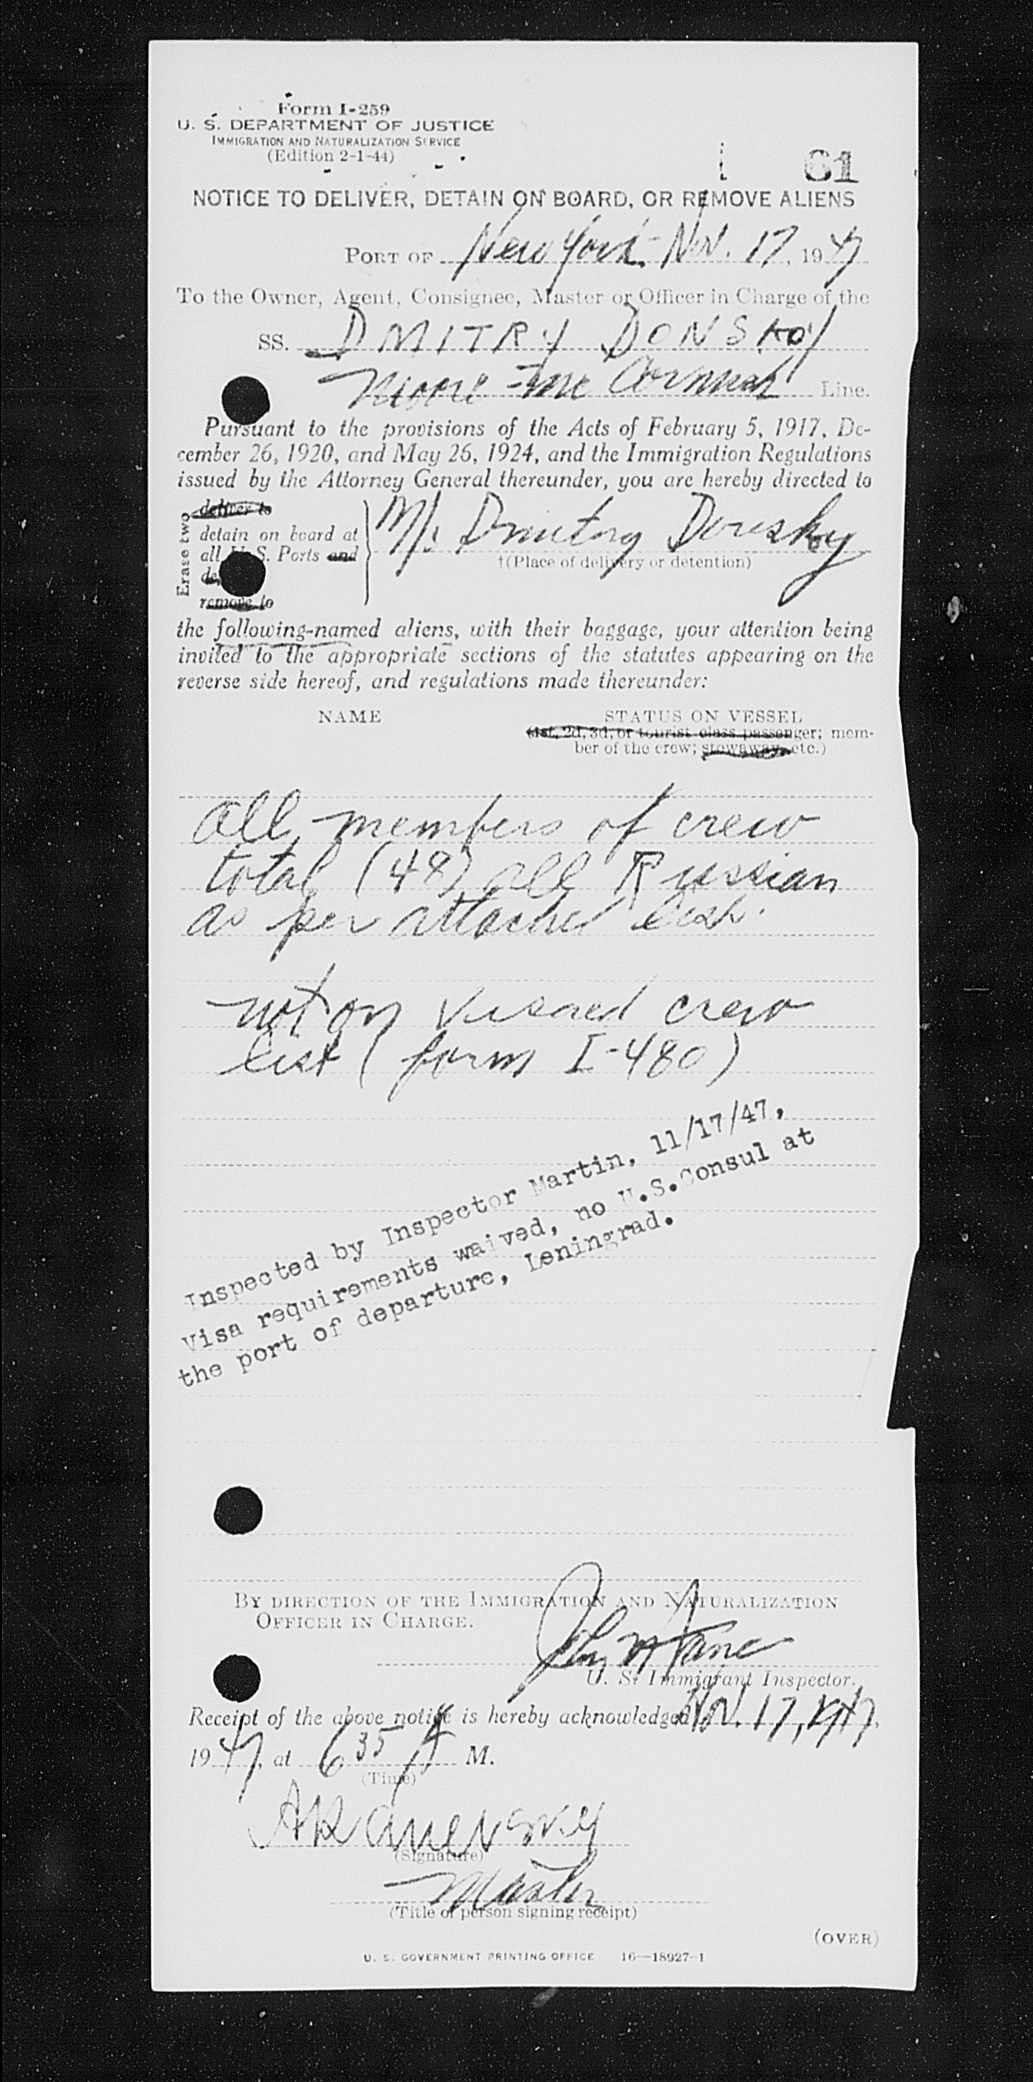 Form I-259
U. S. DEPARTMENT OF JUSTICE
IMMIGRATION AND NATURALIZATION SERVICE
(Edition 2-1-44)
61
NOTICE TO DELIVER, DETAIN ON BOARD, OR REMOVE ALIENS
PORT OF New York Nov. 17, 1947
To the Owner, Agent, Consignee, Master or Officer in Charge of the
SS. DMITRY DONSKOY
Moore-McCormack Line.
Pursuant to the provisions of the Acts of February 5, 1917, De-
cember 26, 1920, and May 26, 1924, and the Immigration Regulations
issued by the Attorney General thereunder, you are hereby directed to
Erase two
deliver to
detain on board at
all U. S. Ports and
remove to
Dmitry Donskoy
†(Place of delivery or detention)
the following-named aliens, with their baggage, your attention being
invited to the appropriate sections of the statutes appearing on the
reverse side hereof, and regulations made thereunder:
NAME
STATUS ON VESSEL
(1st, 2d, 3d, or tourist class passenger; mem-
ber of the crew; stowaway, etc.)
all members of crew
total (48) all Russian
as per attached list.
not on visaed crew
list (form I-480)
Inspected by Inspector Martin, 11/17/47,
Visa requirements waived, no U.S.Consul at
the port of departure, Leningrad.
BY DIRECTION OF THE IMMIGRATION AND NATURALIZATION
OFFICER IN CHARGE.
U. S. Immigrant Inspector.
Receipt of the above notice is hereby acknowledged Nov. 17, 1947.
1947, at 635 A M.
(Time)
(Signature)
Master
(Title of person signing receipt)
(OVER)
U. S. GOVERNMENT PRINTING OFFICE 16—18927-1